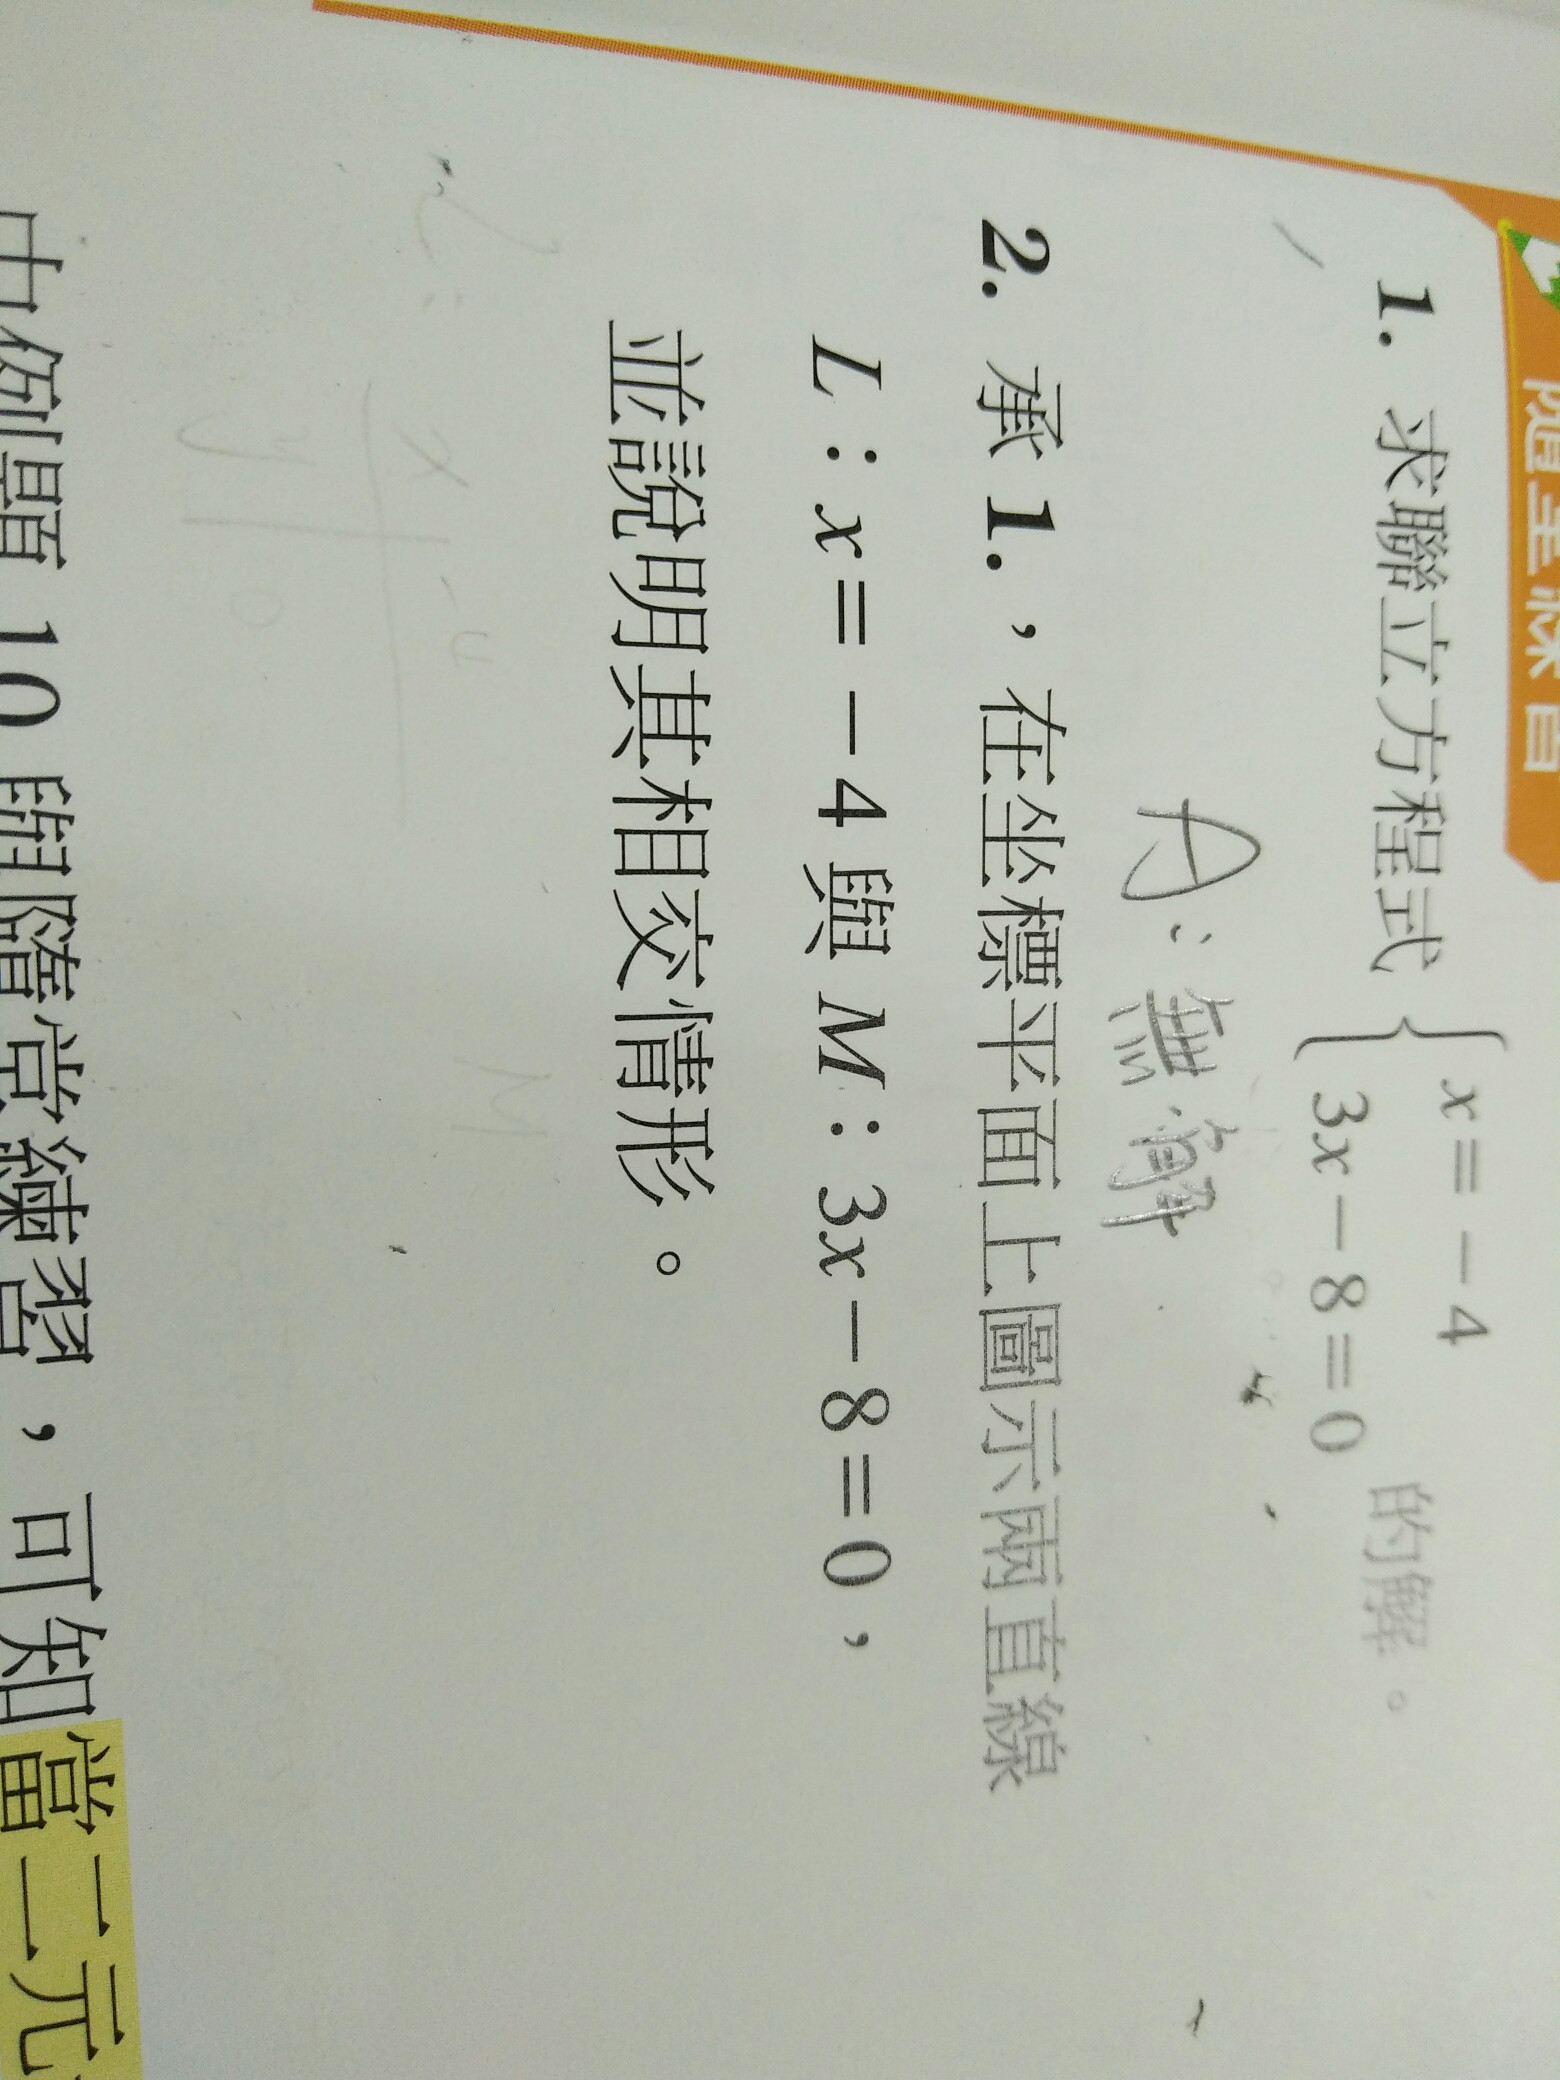 1. 求聯立方程式 { x = -4
3x - 8 = 0 的解。
A: 無解
2. 承 1.，在坐標平面上圖示兩直線
L : x = -4 與 M : 3x - 8 = 0，
並說明其相交情形。
L:
x -4
y 0
M
中例題 10 與隨堂練習，可知當二元